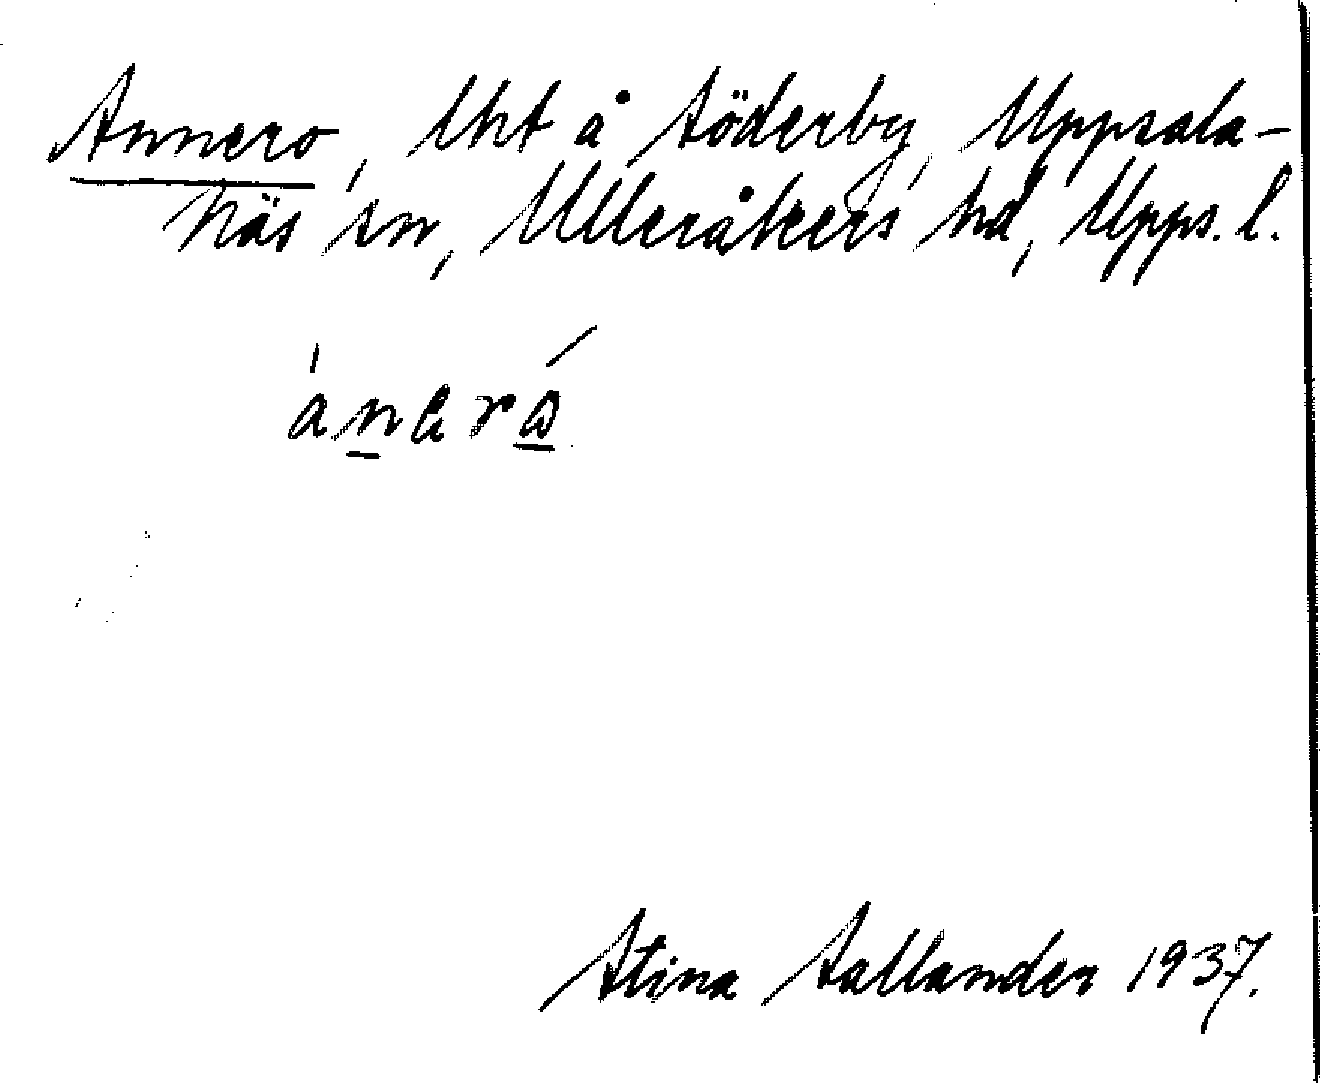 Annero, lht å Söderby, Uppsala-
Näs sn, Ulleråkers hd, Upps. l.
Stina Sallander 1937.